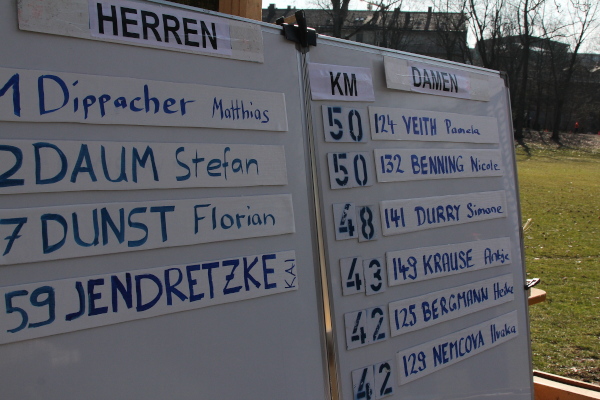 HERREN
1 Dippacher Matthias
2 DAUM Stefan
7 DUNST Florian
59 JENDRETZKE KAI
KM DAMEN
50 124 VEITH Pamela
50 132 BENNING Nicole
48 141 DURRY Simone
43 149 KRAUSE Antje
42 125 BERGMANN Heike
42 129 NEMCOVA